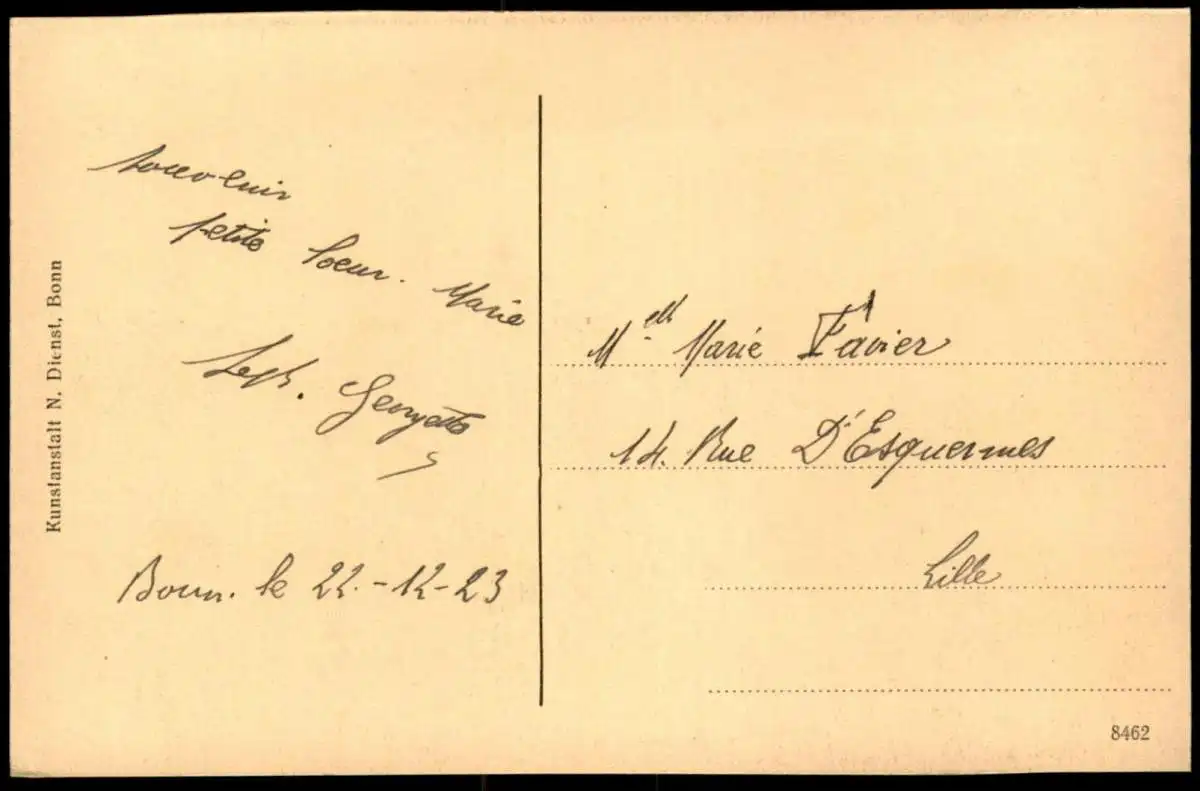 Kunstanstalt N. Dienst, Bonn
petite Soeur. Marie
Bonn. le 22.-12-23
Melle Marie Favier
14. Rue D'Esquermes
Lille
8462